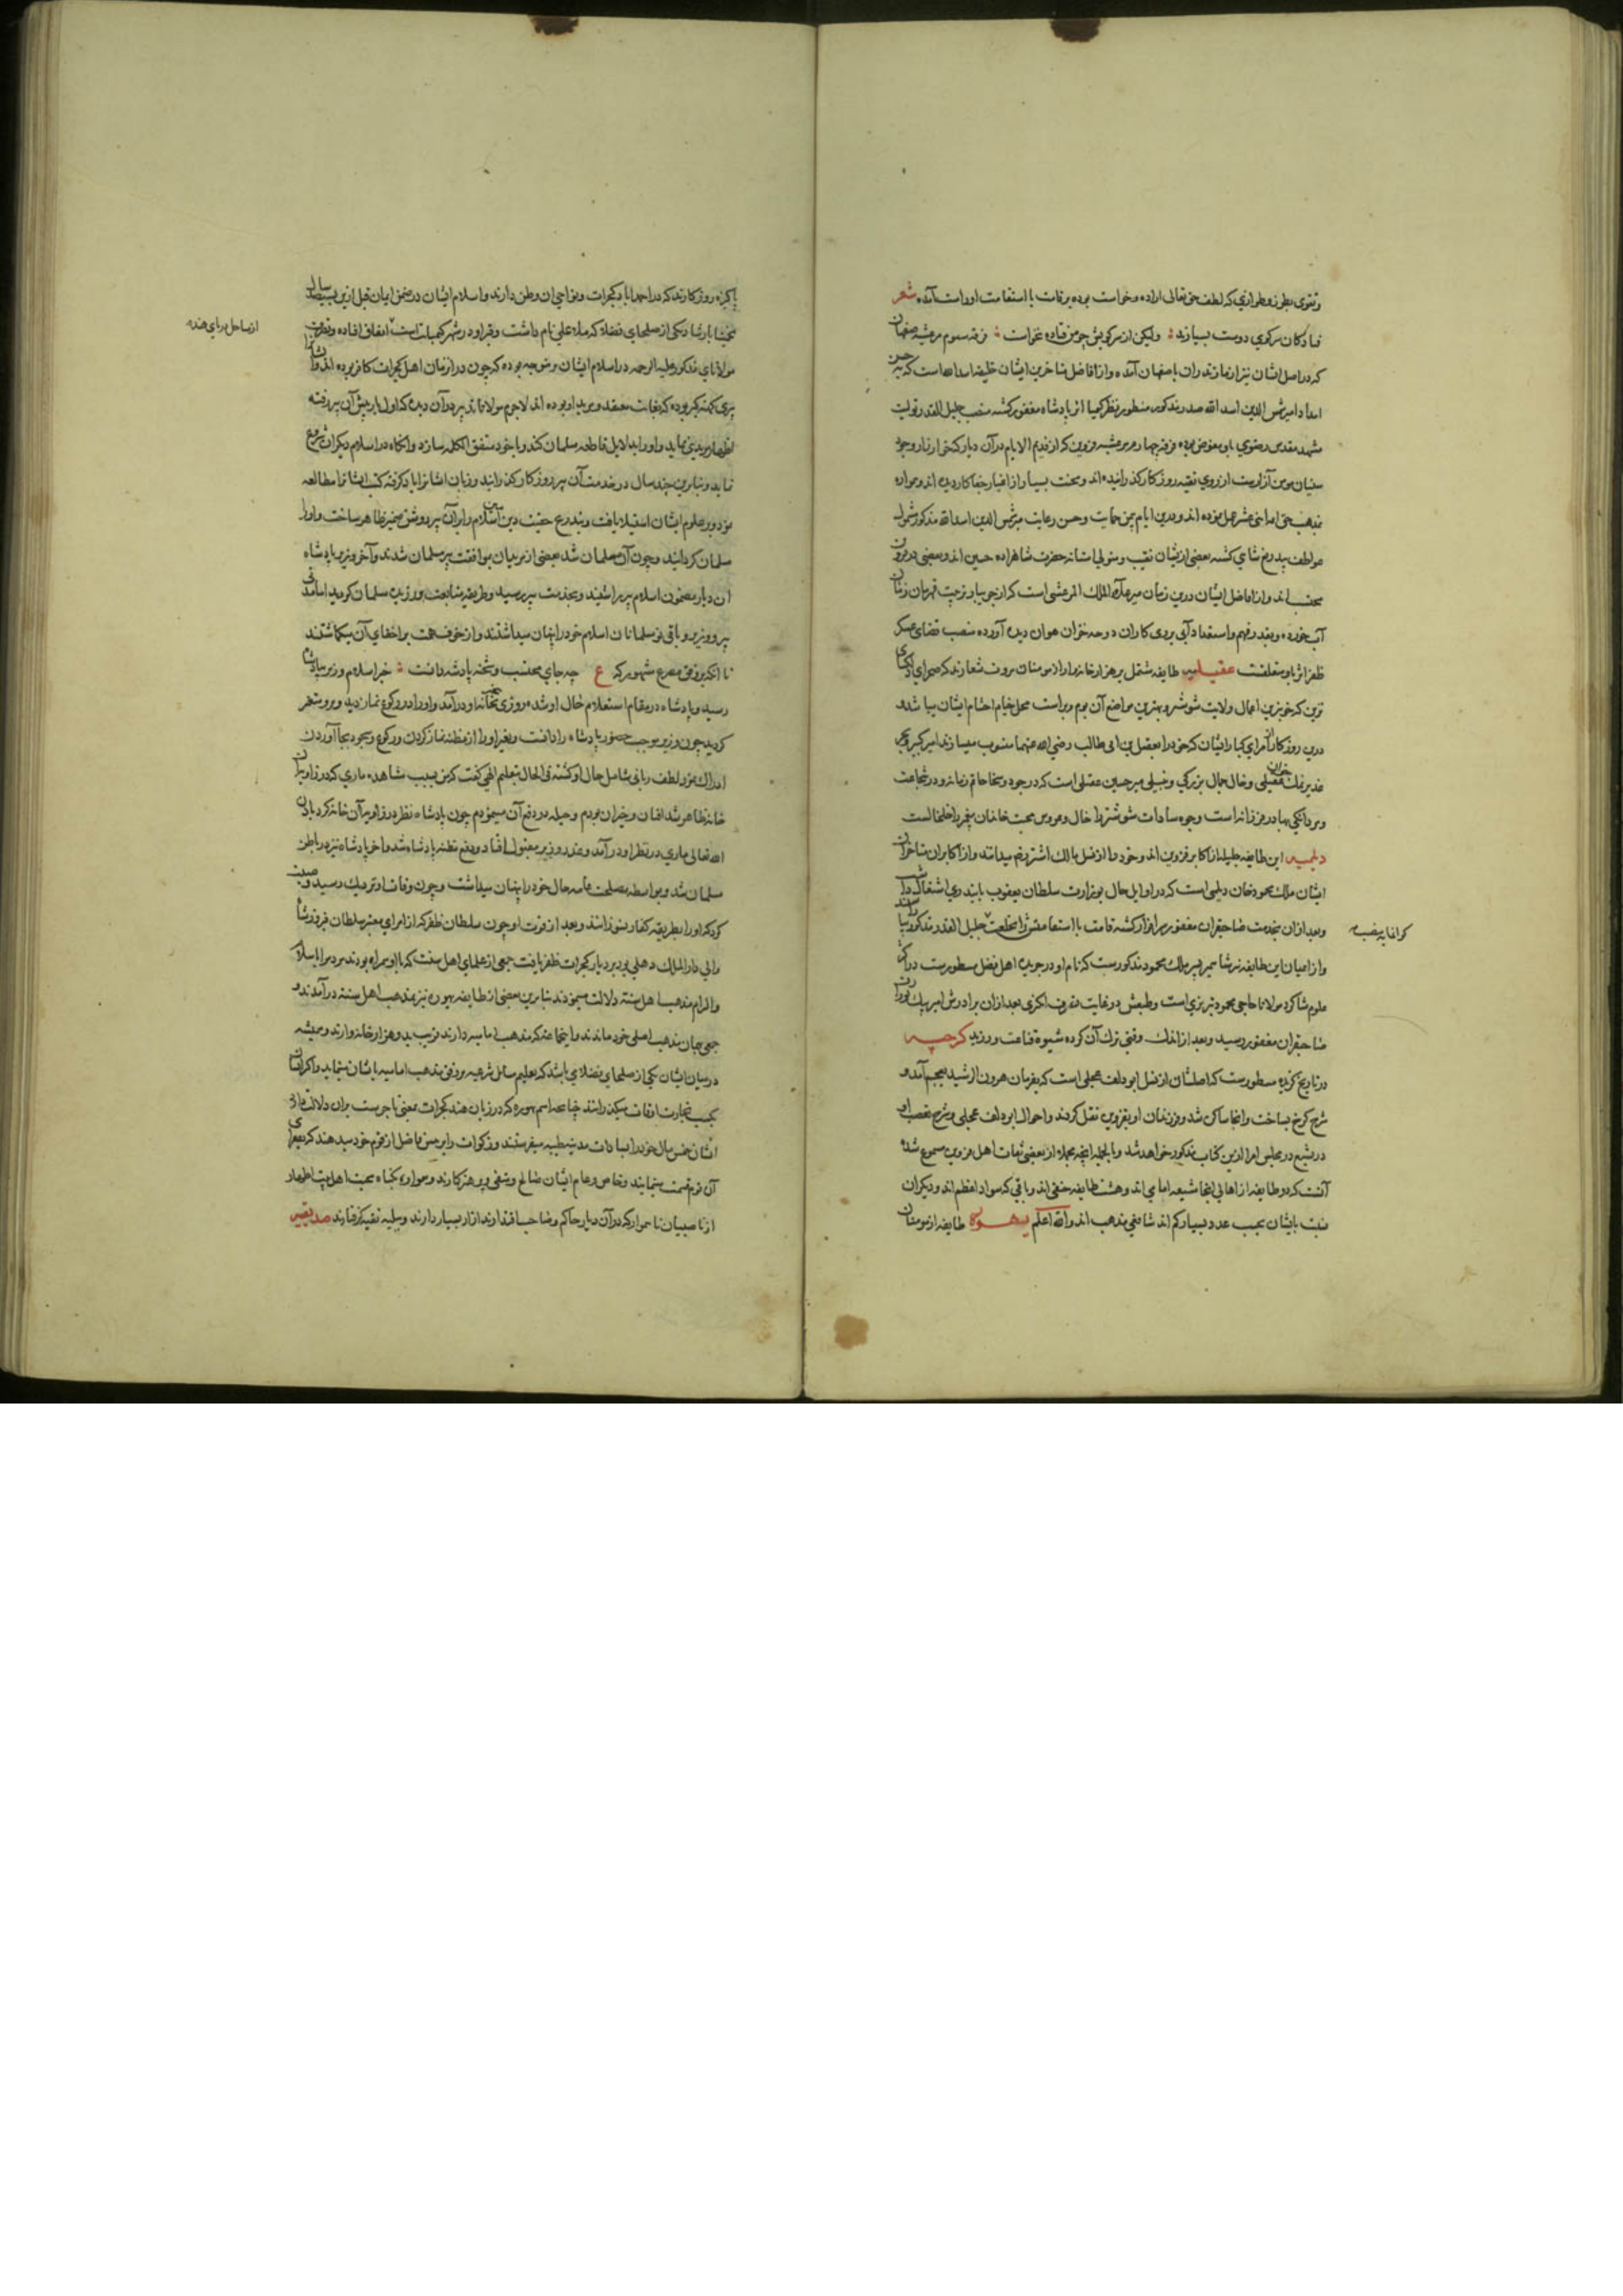 وتقوی بطرز وطوازی که لطف حق تعالی اراده وخواست بوده برقامت با استقامت او راست آمده شعر
فتادکان سرکوی دوست بسیارند ولیکن از سرکویش چو من فتاده نخواست فرقه سوم مرعشیه صفهان
که در اصل ایشان نیز از مازندران باصفهان آمده و از افاضل متاخرین ایشان خلیفه اسدالله است که به حسن
امداد امیر شمس الدین اسد الله صدر مذکور منظور نظر کیمیا اثر پادشاه مغفور کشته منصب جلیل القدر تولیت
مشهد مقدس رضوی باو مفوض بوده فرقه چهارم مرعشیه قزوین که از قدیم الایام در آن دیار
سنیان از روی تقیه روزکار کذرانیده اند ومحنت بسیار از اغیار جفا کار دیده اند وهمواره
بمذهب حق اثنی عشر عمل نموده اند ودرین ایام بیمن حمایت وحسن رعایت میر شمس الدین اسد الله مذکور مشمول
عواطف بیدریغ شاهی کشته بعضی از ایشان نقیب ومتولی استانه حضرت شاهزاده حسین اند وبعضی در قزوین
محتسب اند و از افاضل ایشان درین زمان میر علاء الملک المرعشی است که از جویبار تربیت قهرمان زمان
آب خورده وبقدر فهم واستعداد آبی بروی کار آن دوحه
ظفر اثر باو متعلقست عقیلیه طایفه مشتمل بر هزار خانه وار از مومنان مروت شعارند که صحرای
ترین که خوبترین اعمال ولایت شوشتر وبهترین مواضع آن بوم وبر است محل خیام احشام ایشان میباشد
درین روزکار از امرای کبار ایشان که خود را بعقیل بن ابی طالب رضی الله عنهما منسوب میسازند امیر کبیر
عقیلی وخال جمال بزرکی میر حسین عقیلی است که در جود وسخا حاتم زمانه ودر شجاعت
ومردانکی بهادر فرزانه است وجوه سادات شوشتر را خال وعروس محبت خاندان پیغمبر را خلخالست
دیلمیه این طایفه جلیله از اکابر قزوین اند وخود را از نسل مالک اشتر نخع میدانند و از اکابر متاخران
ایشان ملک محمود خان دیلمی است که در اوایل حال بوزارت سلطان یعقوب بایندری اشتغال داشت
وبعد از آن بخدمت صاحبقران مغفور سرافراز کشته قامت با استقامتش را بخلعت جلیل القدر مذکور
کرانمایه منصب
و از اعیان این طایفه پسر ملک محمود مذکورست که نام او در جریده اهل فضل مسطورست در اکثر
علوم شاکرد مولانا حاجی محمود تبریزی است وطبعش در غایت بعد از آن برادرش امیر بیک بوزارت
صاحبقران مغفور رسید وبعد از اندک وقتی ترک آن کرده شیوه قناعت ورزید کرجیه
در تاریخ کزیده مسطورست که اصلشان از نسل ابو دلف عجلی است که بفرمان هرون الرشید بعجم آمد و
شهر کرج بساخت و انجا ساکن شد وفرزندان او بقزوین نقل کردند واحوال ابو دلف عجلی وشرح تعصب او
در تشیع در مجلس امرا ازین کتاب مذکور خواهد شد وبالجمله انچه مجملا از بعضی ثقات اهل قزوین مسموع شده
آنست که دو طایفه از اهالی انجا شیعه امامی اند وهشت طایفه حنفی اند وباقی که سواد اعظم اند ودیکران
نسبت بایشان بحسب عدد بسیار کم اند شافعی مذهب اند والله اعلم بهوره طایفه از مومنان
پاکیزه روزکارند که در احمداباد کجرات ونواحی ان وطن دارند واسلام ایشان قبل ازین بسیصد سال
تخمینا بارشاد یکی از صلحای فضلا که ملا علی نام داشت وقبر او در شهر کمبایت است اتفاق افتاده
از سواحل دریای هند
مولانای مذکور علیه الرحمه در اسلام ایشان برین وجه بوده که چون در آن زمان اهل کجرات کافر بوده اند وایشانرا
پیری کهنه کبر بوده که بغایت معتقد ومرید او بوده اند لاجرم مولانا تدبیر در آن دیده که اول پیش آن پیر رفته
اظهار مریدی نماید و او را بدلایل قاطعه مسلمان کند وبا خود متفق الکلمه سازد وانکاه در اسلام دیکران شروع
نماید وبنابرین چند سال در خدمت آن پیر روزکار کذرانید وزبان ایشانرا یاد کرفته کتب ایشانرا مطالعه
نمود وبر علوم ایشان استیلا یافت وبتدریج حقیت دین اسلام را بر آن پیر روشن ضمیر ظاهر ساخت واورا
مسلمان کردانید وچون آن مسلمان شد بعضی از مریدان بموافقت پیر مسلمان شدند وآخر وزیر پادشاه
ان دیار مضمون اسلام پیر را شنید وبخدمت پیر رسید وطریقه متابعت ورزیده مسلمان کردید اما مدتی
پیر ووزیر وباقی نو مسلمانان اسلام خود را پنهان میداشتند و از خوف همت بر اخفای آن میکماشتند
تا انکه بر وفق مصرع مشهور که ع چه جای محتسب وشحنه پادشه دانست خبر اسلام وزیر بپادشاه
رسید وپادشاه در مقام استعلام حال او شده روزی بخانه او در آمد و او را در رکوع نماز دید وبرو متغیر
کردید چون وزیر موجب حضور پادشاه را دانست وتغیر او را از مظنه نماز کردن ورکوع وسجود بجا آوردن
ادراک نمود لطف ربانی شامل حال او کشته فی الحال بتعلیم الهی کفت که من بسبب مشاهده ماری که در زاویه ان
خانه ظاهر شد افتان وخیزان بودم وحیله در دفع آن مینمودم چون پادشاه نظر در زاویه آن خانه کرد باذن
الله تعالی ماری در نظر او در آمد وعذر وزیر مقبول افتاد ودفع مظنه پادشاه شد واخر پادشاه نیز در باطن
مسلمان شد وبواسطه مصلحت عامه حال خود را پنهان میداشت وچون وفات او نزدیک رسید وصیت
کرد که او را بطریقه کفار نسوزانند وبعد از فوت او چون سلطان ظفر که از امرای معتبر سلطان فیروز شاه
والی دار الملک دهلی بود بر دیار کجرات ظفر یافت جمعی از علمای اهل سنت که با او همراه بودند مردم را باسلام
والزام مذهب اهل سنت دلالت مینمودند بنابرین بعضی از طایفه بهوره نیز بمذهب اهل سنت در آمدند و
جمعی بهمان مذهب اصلی خود ماندند واینجماعت که مذهب امامیه دارند قریب بدو هزار خانه وارند وهمیشه
در میان ایشان یکی از صلحای فضلا می باشد که تعلیم مسایل شرعیه بر وفق مذهب امامیه بایشان مینماید واکثر ایشان
بکسب تجارت اوقات میکذرانند چنانچه اسم بهوره که در زبان هند کجرات بمعنی تاجرست بران دلالت دارد
ایشان خمس مال خود را بسادات مدینه طیبه میفرستند وزکوات را بپیرمن فاضل از قوم خود میدهند که بفقرای
آن قوم قسمت مینمایند وخاص وعام ایشان صالح ومتقی وپرهیزکارند وهمواره بکناه محبت اهل بیت اطهار
از ناصبیان ناهموار که در آن دیار حاکم وصاحب اقتدارند ازار بسیار دارند وببلیه تقیه کرفتارند صدیقیه